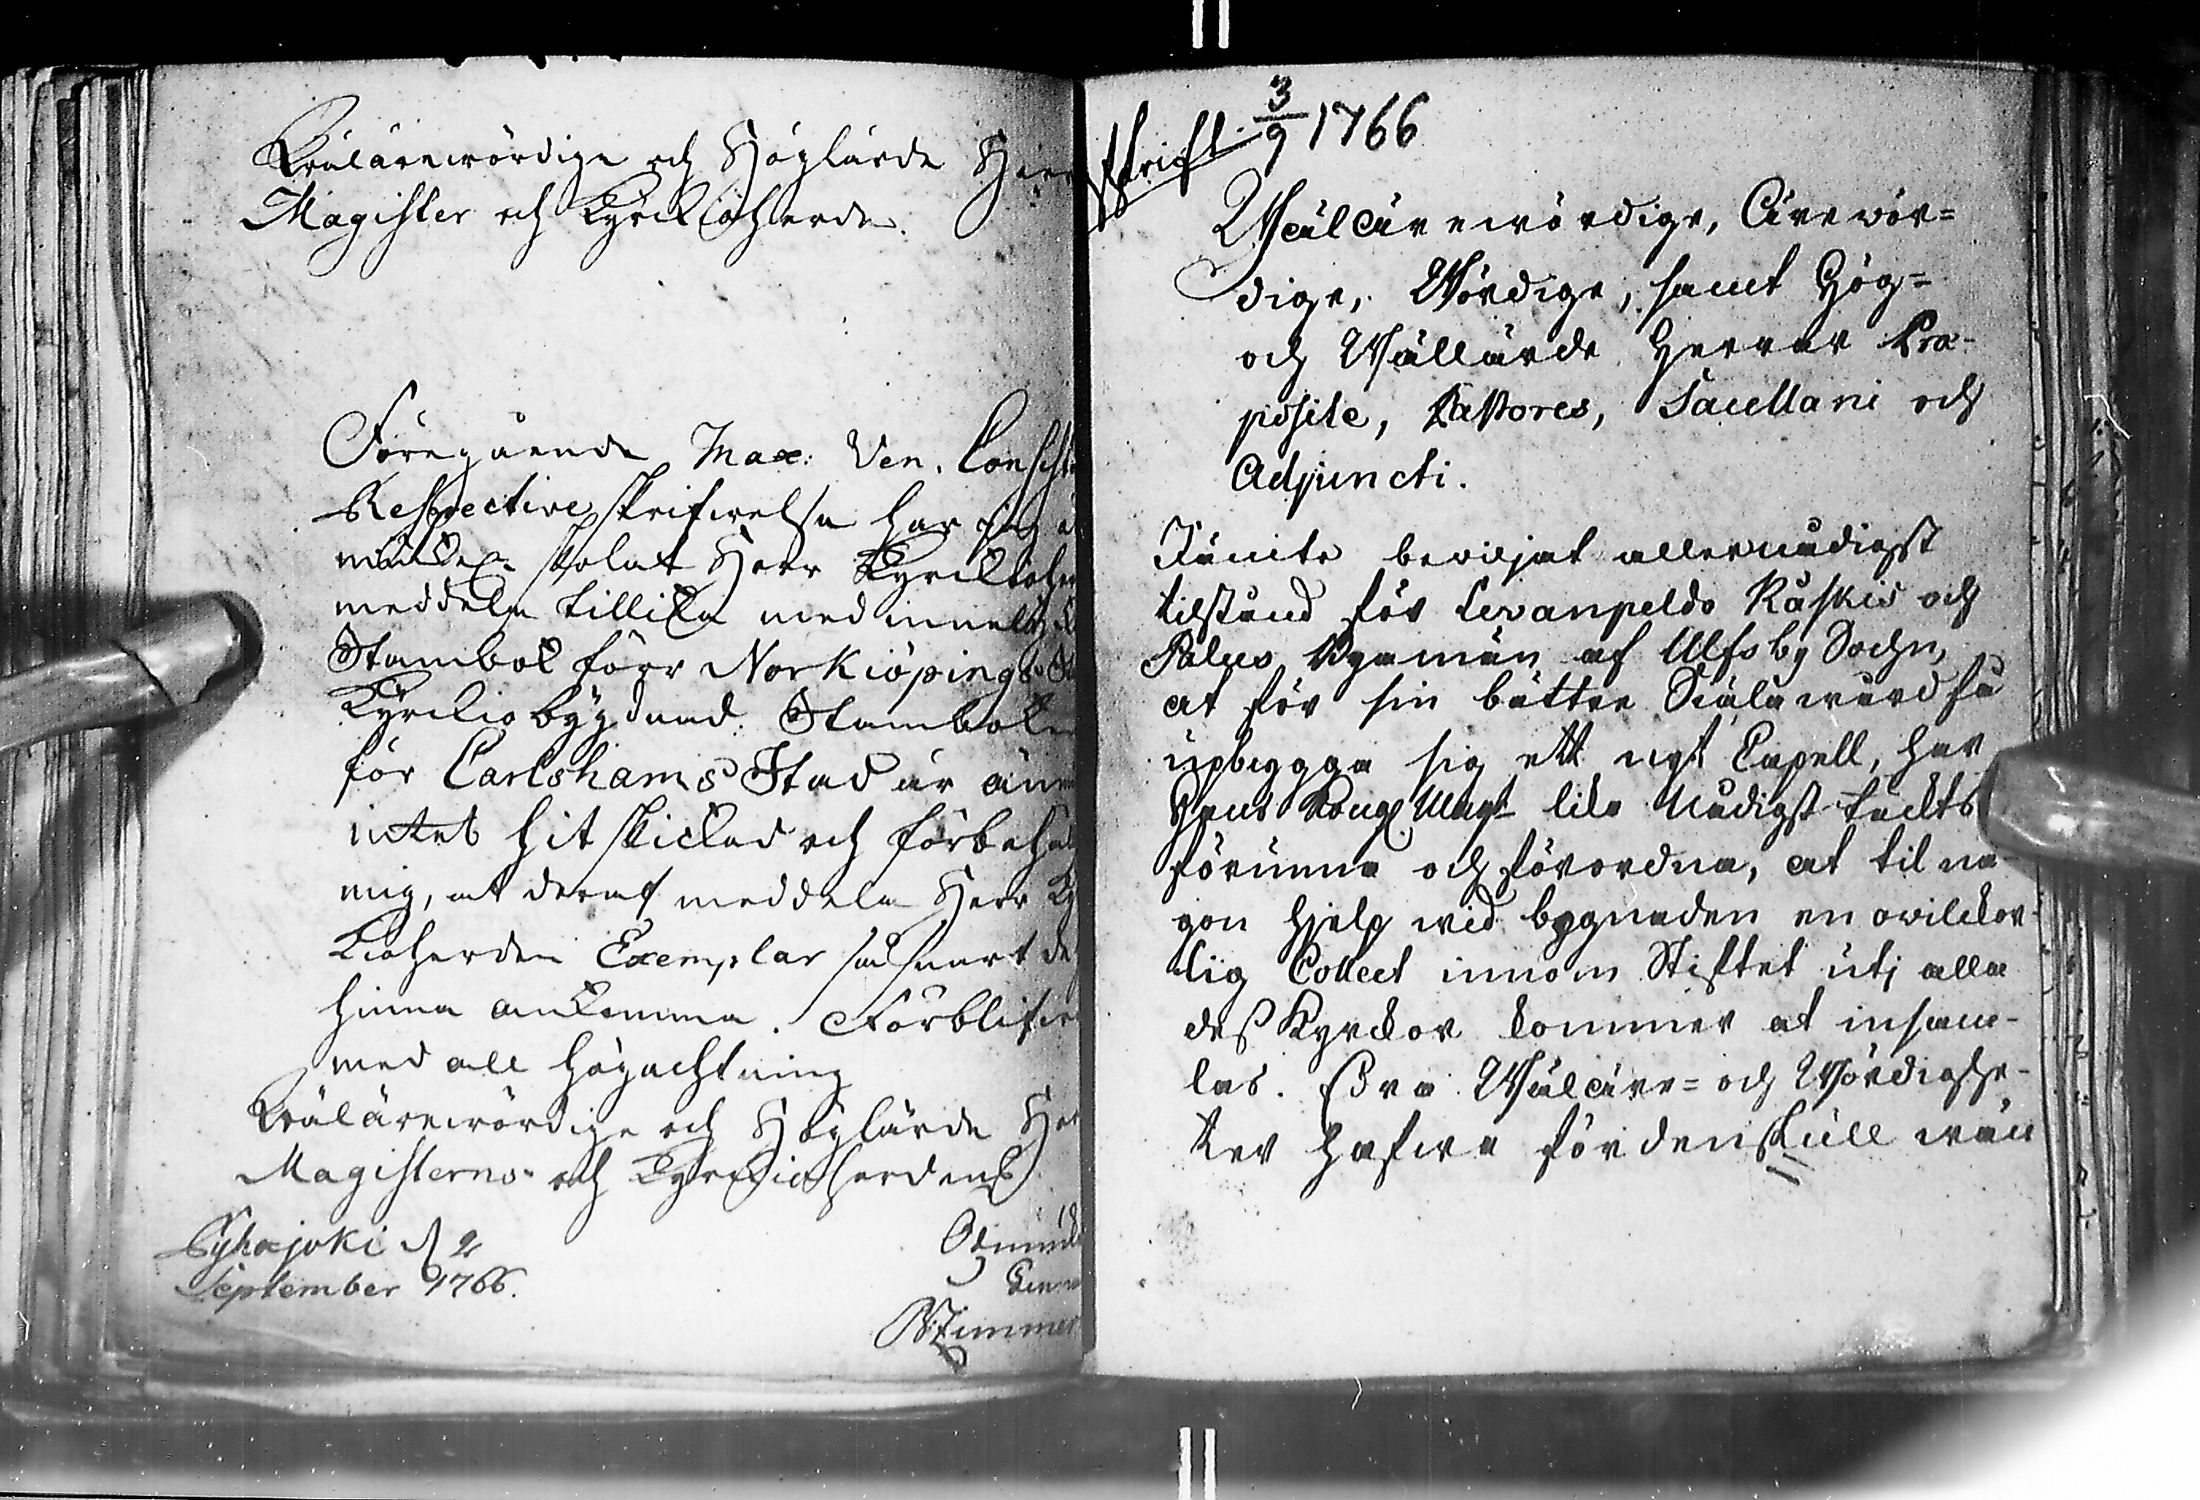 Wälärewördige och Höglärde Herr
Magister och Kyrckioherde.
Föregående Max: Ven. Consist
Respective skrifwelse har jag
skolat Herr Kyrckioher
meddela tillika med innelyckt
Stambok förr Norkiöpings
Kyrckiobygdnad. Stamboken
för Carlshams Stad är ännu
intet hitskickad och förbehåller
mig, at deraf meddela Herr Ky
kioherden Exemplar såsnart de
hinna ankomma. Förblifwer
med all högachtning
Wälärewördige och Höglärde Her
Magisterns och Kyrckioherdens
Pyhajoki d 2
September 1766.
Ödmiuke
tienare
Zimmer
afskrift. 3/9 1766
Wälärewördige, Ärewör=
dige, Wördige, samt Hög=
och Wällärde Herrar Præ-
positi, Pastores, Sacellani och
Adjuncti.
Jämte beviljat allernådigst
tilstånd för Levanpeldo Räskis och
Palus Byamän af Ulfsby Sochn,
at för sin bättre Siälawård få
upbygga sig ett nytt Capell, har
Hans Kongl Mayt like Nådigst täckts
förunna och förordna, at til nå-
gon hjelp wid bygnaden en owilckor-
lig Collect innom Stiftet uti alla
dess Kyrckor kommer at insam-
las. Edra Wälärre= och Wördighe-
ter hafwa fördenskull wäl